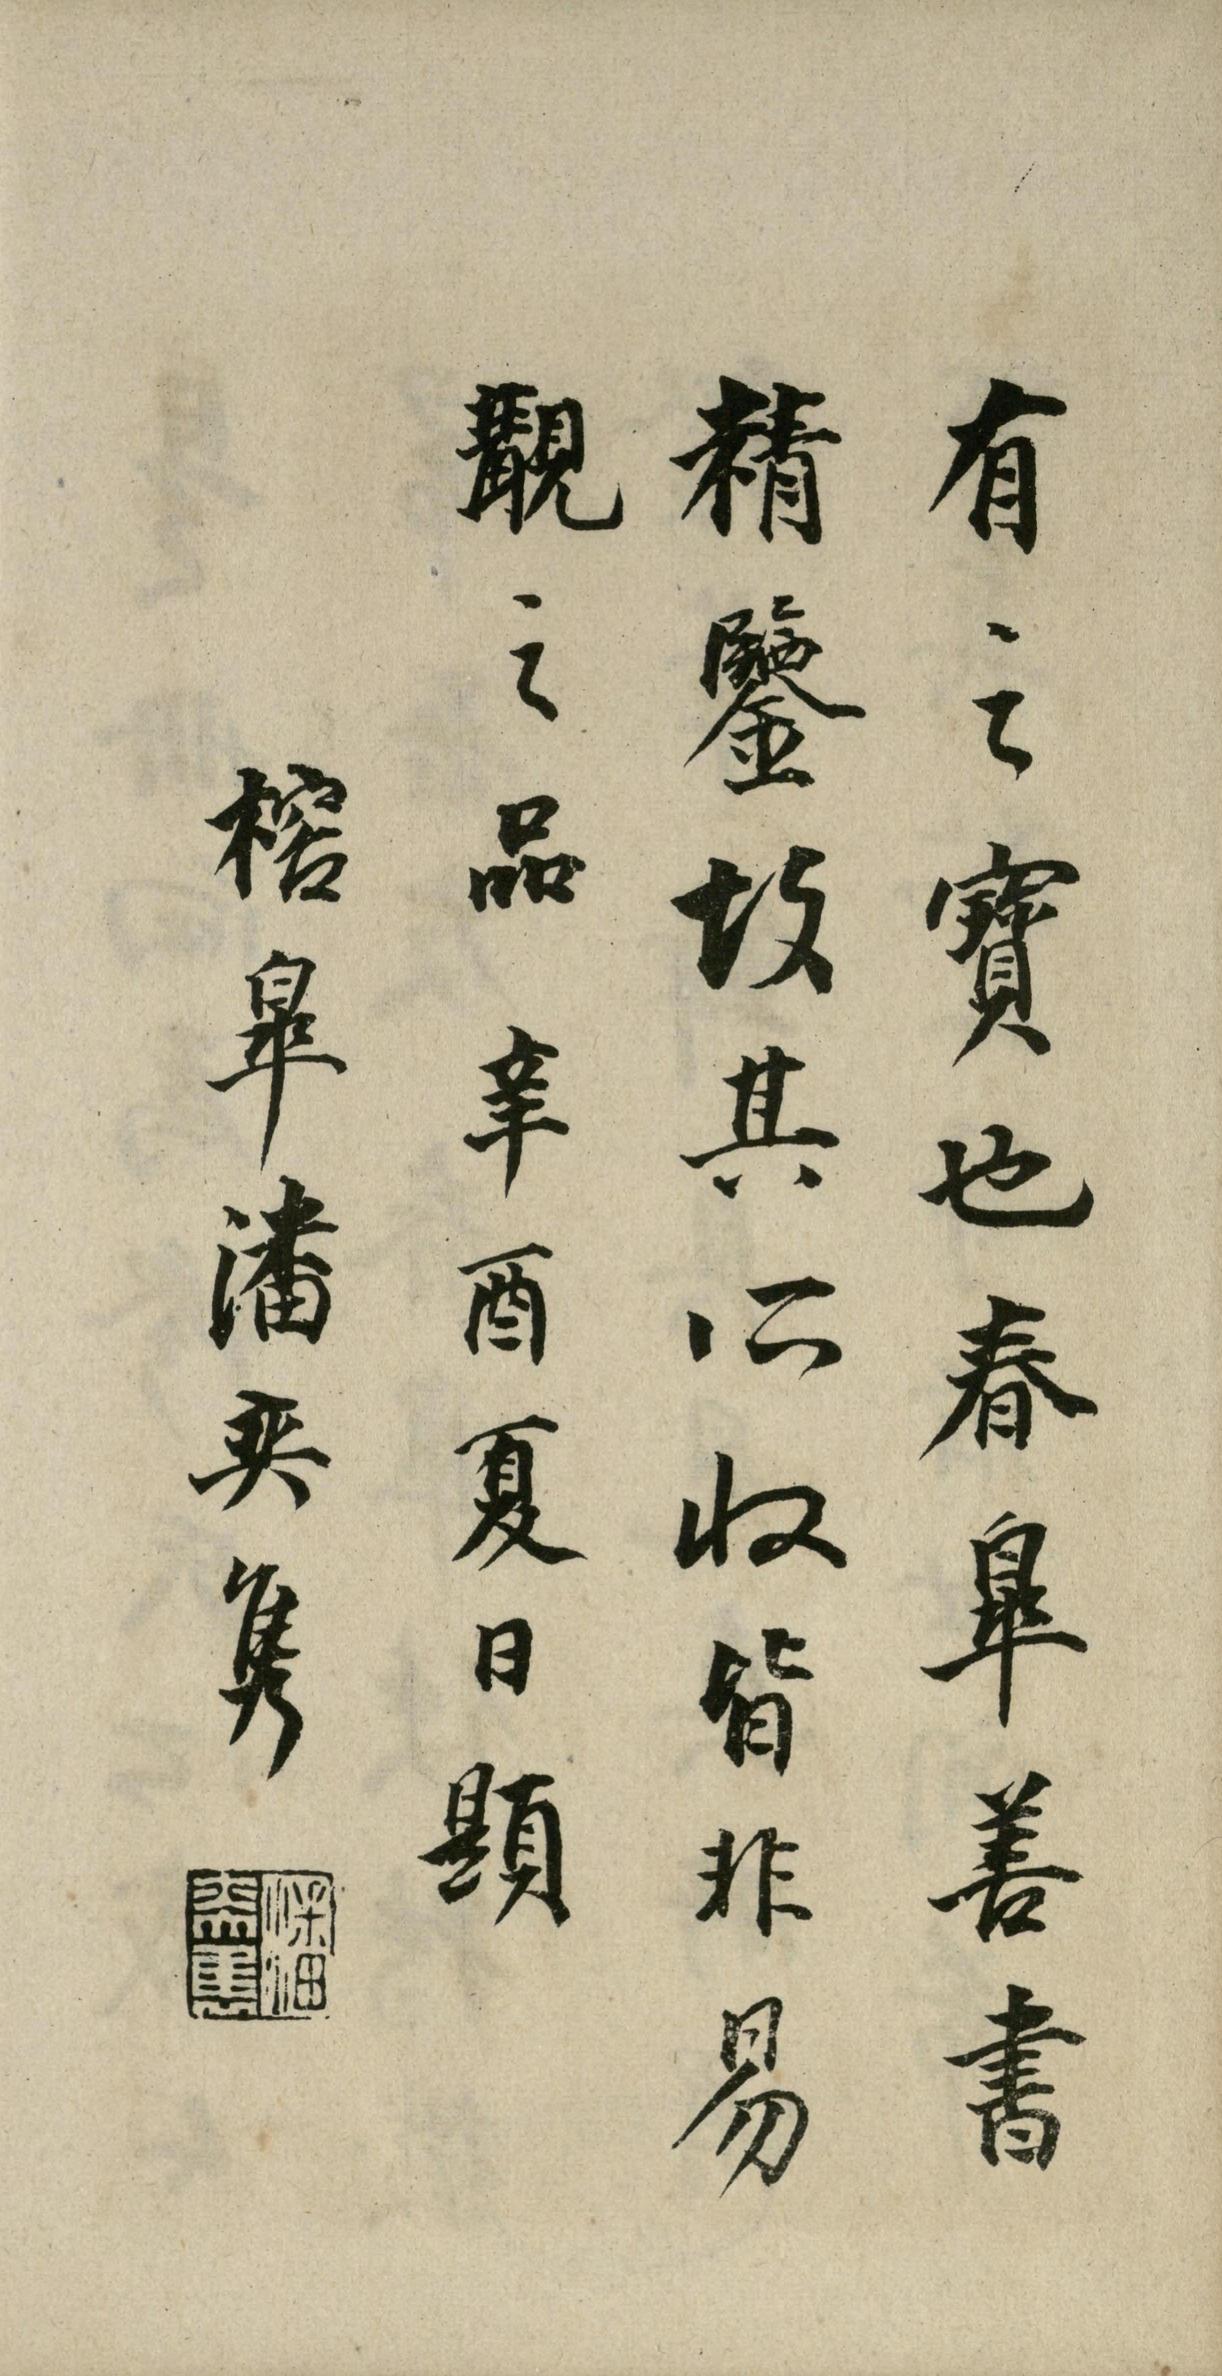 有之寶也春臯善書
精鑒故其所收皆非易
覯之品辛酉夏日題
榕臯潘奕雋